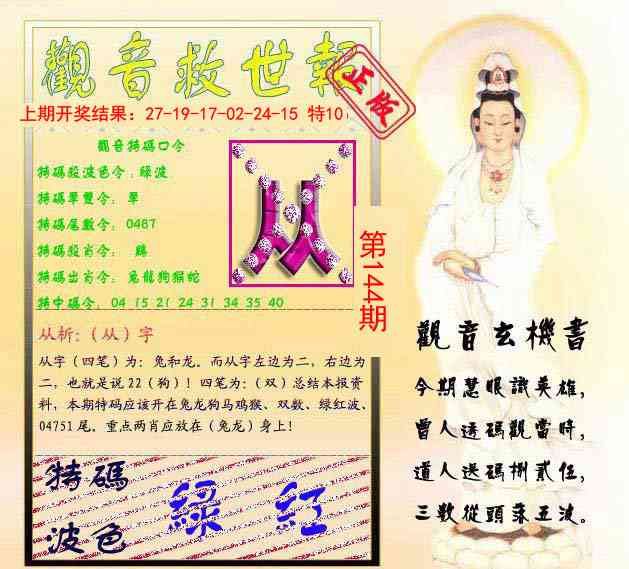 觀音救世報
正版
上期开奖结果：27-19-17-02-24-15 特10
觀音特碼口令
特碼殺波色令：綠波
特碼單雙令：單
特碼尾數令：0487
特碼殺肖令：鷄
特碼出肖令：兔龍狗猴蛇
特中碼令：04 15 21 24 31 34 35 40
从
第144期
从析：（从）字
从字（四笔）为：兔和龙。而从字左边为二，右边为
二，也就是说 22（狗）！四笔为：（双）总结本报资
料，本期特码应该开在兔龙狗马鸡猴、双数、绿红波、
04751 尾。重点两肖应放在（兔龙）身上！
特碼
波色
綠 紅
觀音玄機書
今期慧眼識英雄，
曾人透碼觀當時，
道人送碼捌貳伍，
三數從頭落五波。